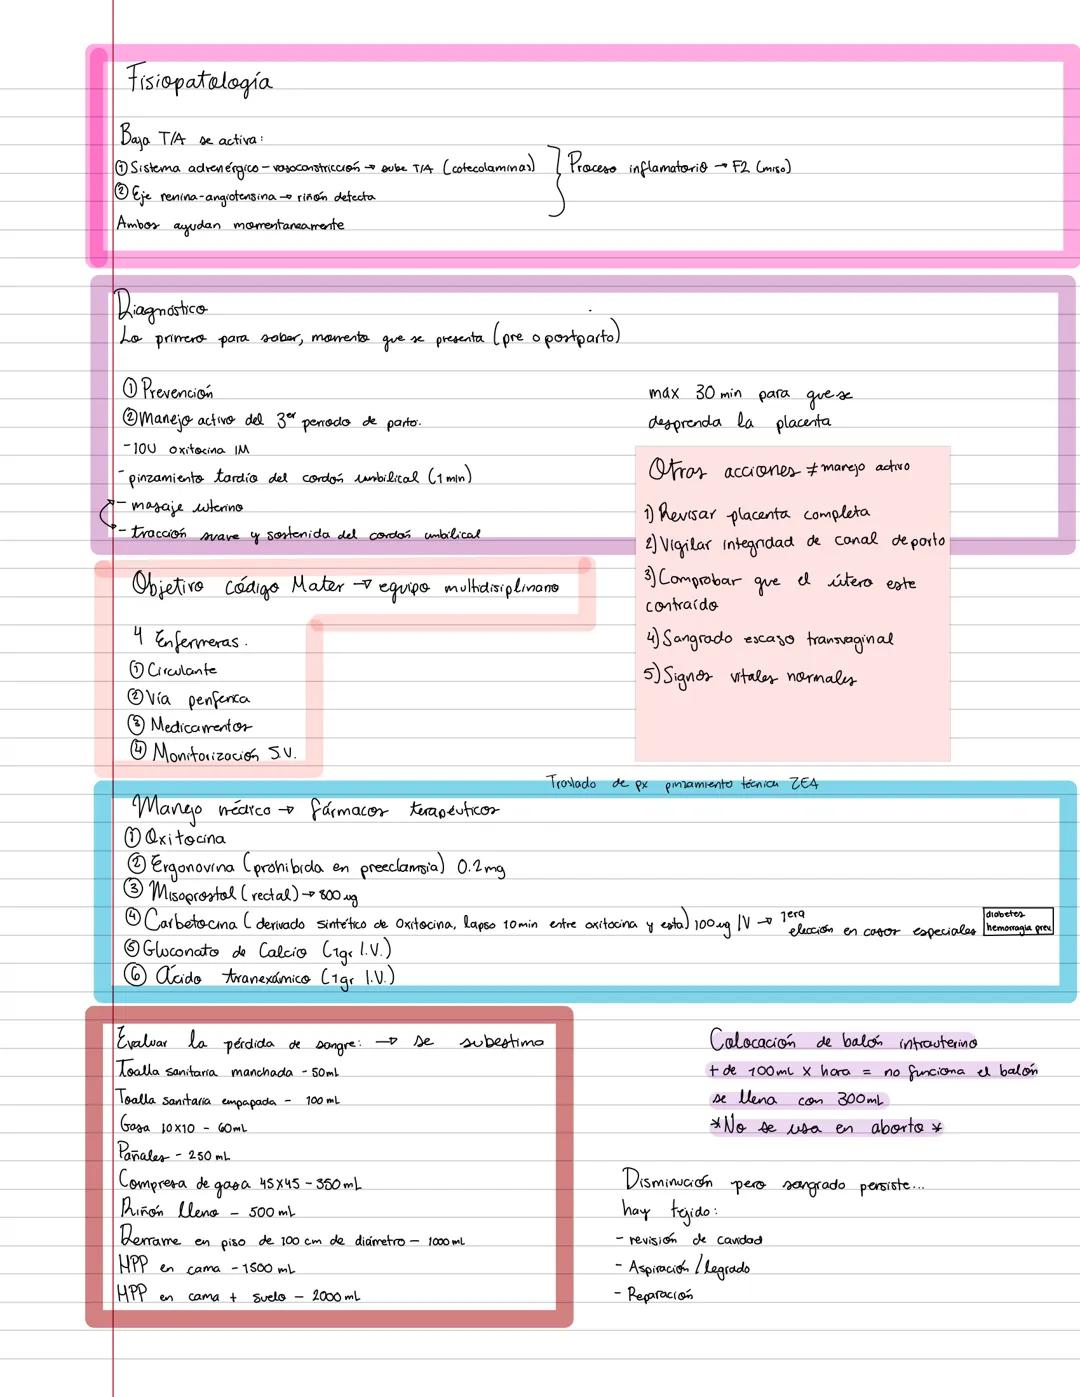 Fisiopatología
Baja T/A se activa:
① Sistema adrenérgico - vasoconstricción → sube T/A (catecolaminas)
② Eje renina-angiotensina → riñón detecta
Ambos ayudan momentaneamente
Proceso inflamatorio → F2 (miso)
Diagnóstico
Lo primero para saber, momento que se presenta (pre o postparto)
① Prevención
② Manejo activo del 3er periodo de parto.
- 10U oxitocina IM
- pinzamiento tardío del cordón umbilical (1 min)
- masaje uterino
- tracción suave y sostenida del cordón umbilical
máx 30 min para que se
desprenda la placenta
Otras acciones ≠ manejo activo
1) Revisar placenta completa
2) Vigilar integridad de canal de parto
3) Comprobar que el útero este
contraído
4) Sangrado escaso transvaginal
5) Signos vitales normales
Objetivo código Mater → equipo multidisiplinario
4 Enfermeras.
① Circulante
② Vía periferica
③ Medicamentos
④ Monitorización S.V.
Traslado de px pinzamiento técnica ZEA
Manejo médico → fármacos terapéuticos
① Oxitocina
② Ergonovina (prohibida en preeclamsia) 0.2mg
③ Misoprostol (rectal) → 800 ug
④ Carbetocina (derivado sintético de Oxitocina, lapso 10min entre oxitocina y esta) 100 ug IV → 1era
elección en casos especiales
diabetes
hemorragia prev
⑤ Gluconato de Calcio (1gr I.V.)
⑥ Ácido tranexámico (1gr I.V.)
Evaluar la pérdida de sangre: → se subestima
Toalla sanitaria manchada - 50mL
Toalla sanitaria empapada - 100 mL
Gasa 10x10 - 60mL
Pañales - 250 mL
Compresa de gasa 45x45 - 350 mL
Riñón lleno - 500 mL
Derrame en piso de 100 cm de diámetro - 1000 mL
HPP en cama - 1500 mL
HPP en cama + suelo - 2000 mL
Colocación de balón intrauterino
+ de 100mL x hora = no funciona el balón
se llena con 300mL
*No se usa en aborto*
Disminución pero sangrado persiste...
hay tejido:
- revisión de cavidad
- Aspiración / legrado
- Reparación